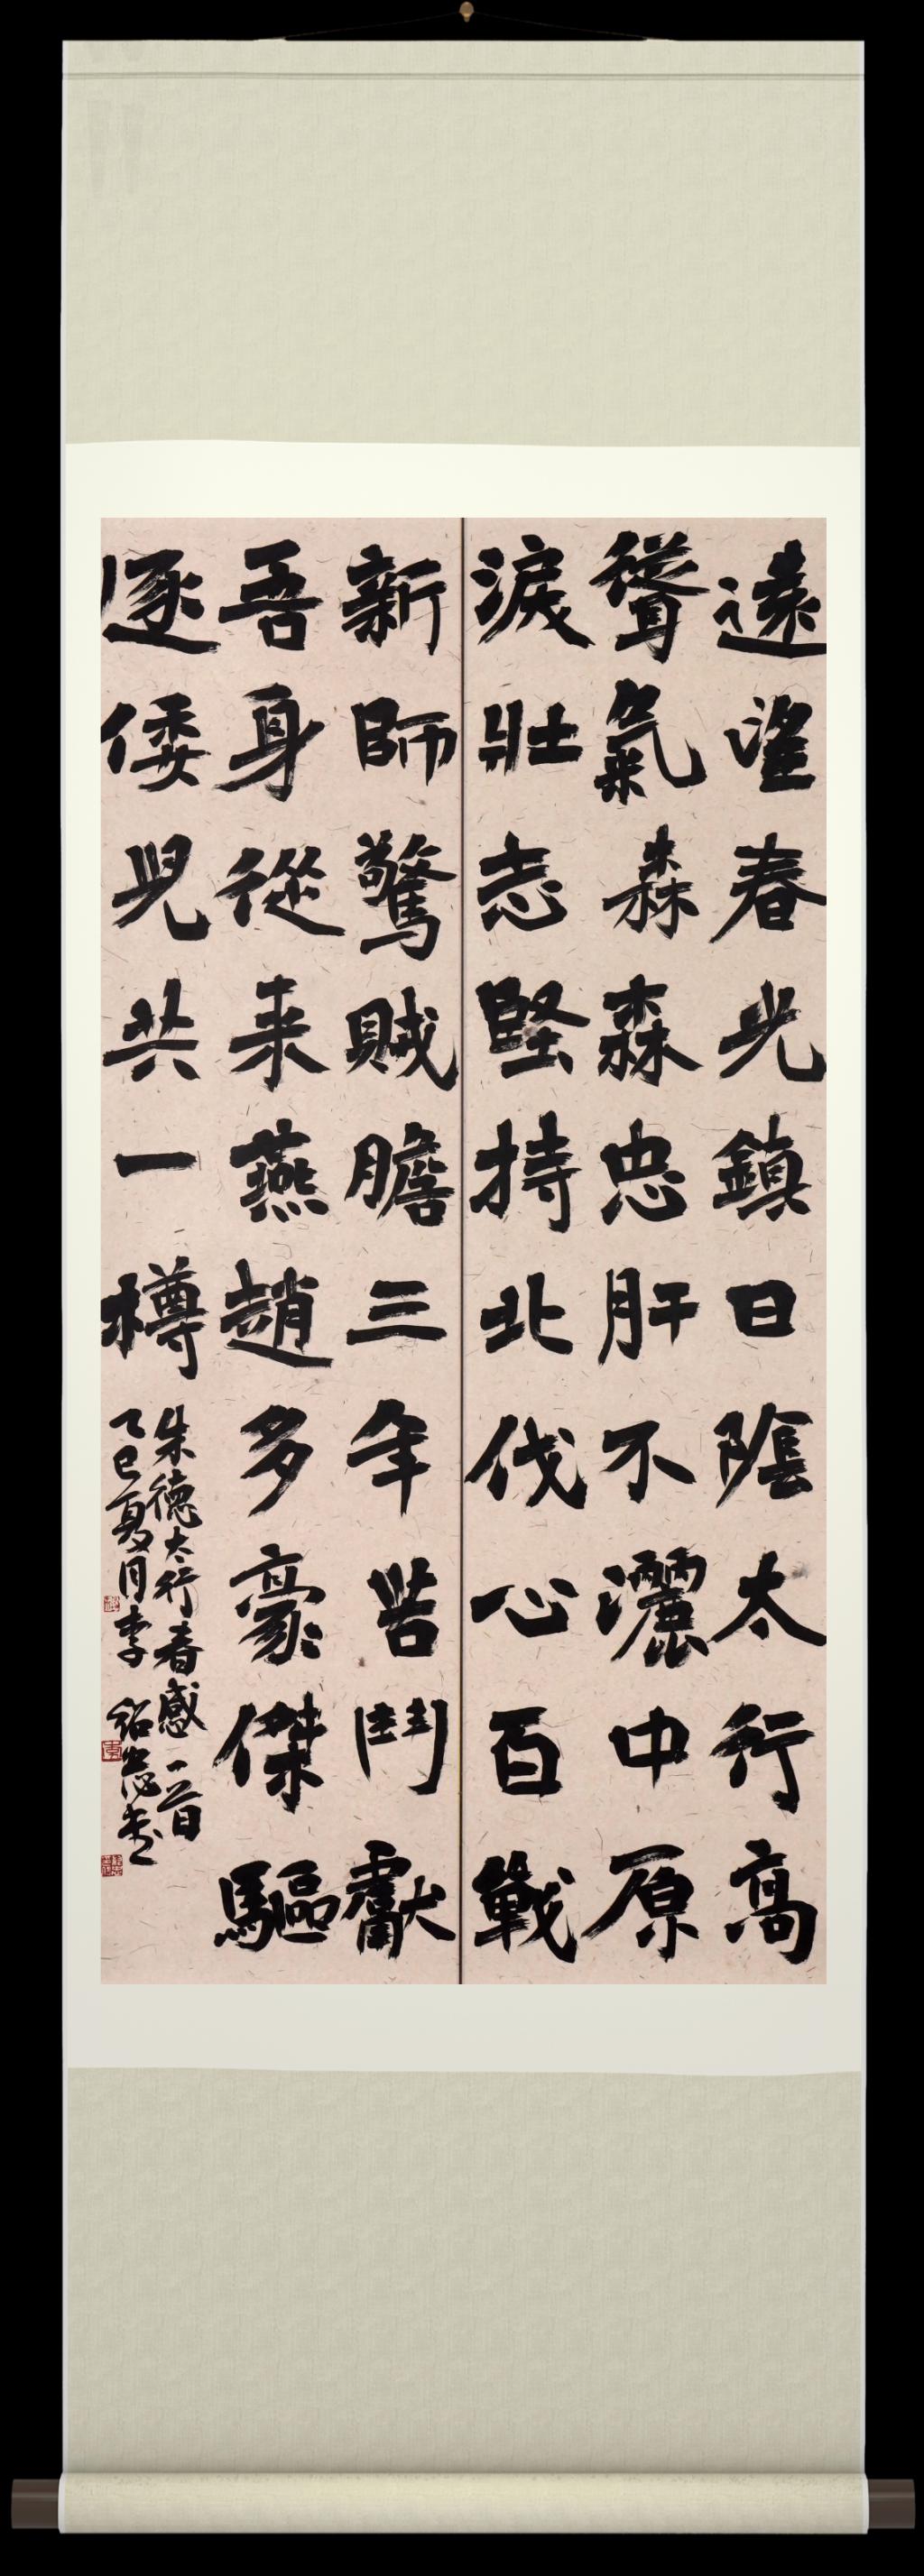 遠望春光鎮日陰太行高
聳氣森森忠肝不灑中原
淚壯志堅持北伐心百戰
新師驚賊膽三年苦鬥獻
吾身從来燕趙多豪傑驅
逐倭児共一樽
朱德太行春感一首
乙巳夏月李紹忠書